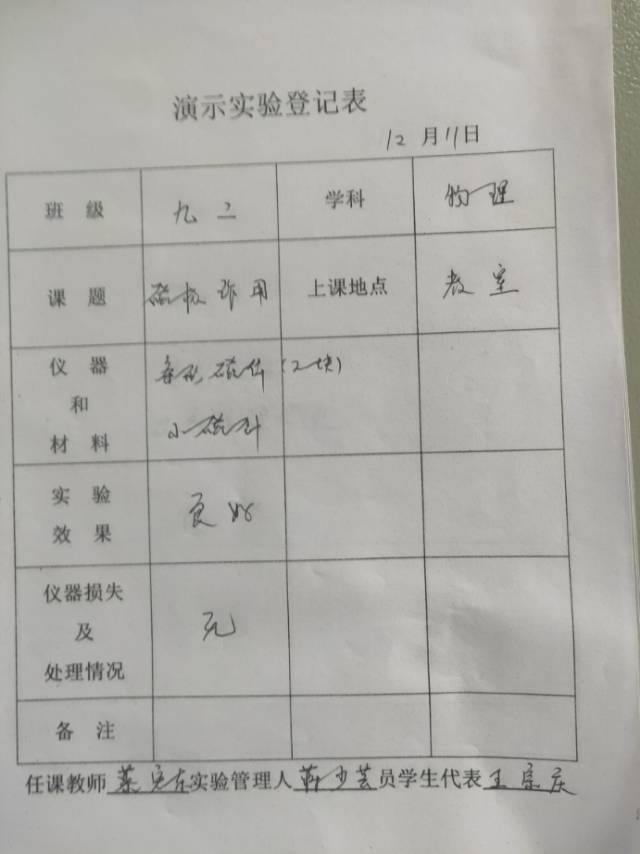 演示实验登记表
12 月 11 日
班 级 九 二 学科 物理
课 题 磁极作用 上课地点 教室
仪 器 条形磁体(2块)
和
材 料 小磁针
实 验
效 果 良好
仪器损失
及 无
处理情况
备 注
任课教师 实验管理人 员学生代表 王宗庆